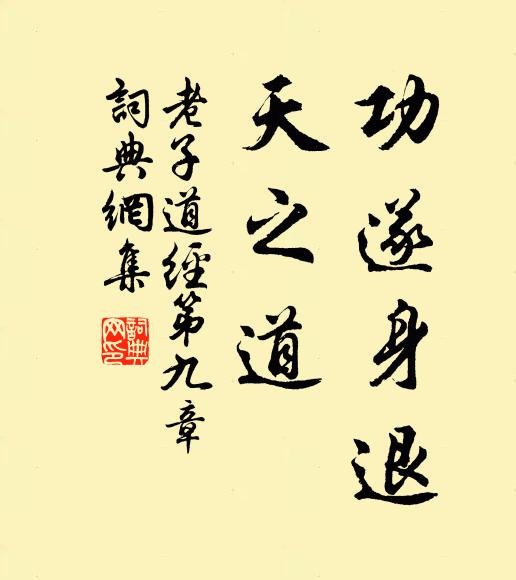 功遂身退
天之道
老子道經第九章
詞典網集
詞典網印